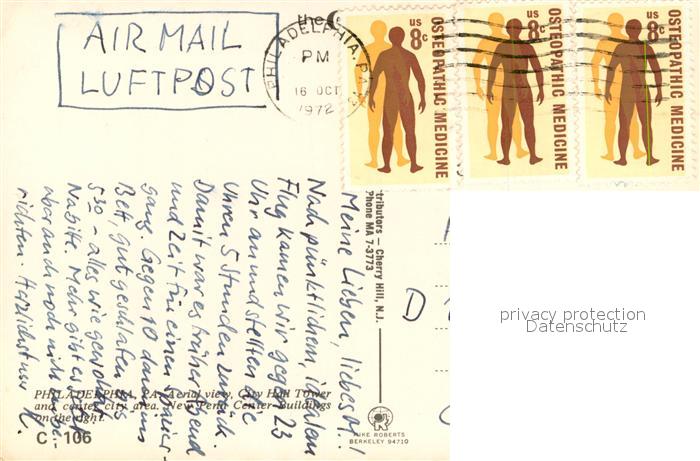 AIR MAIL
LUFTPOST
the
PHILADELPHIA, PA
PM
16 OCT
1972
US
8c
OSTEOPATHIC MEDICINE
US
8c
OSTEOPATHIC MEDICINE
US
8c
OSTEOPATHIC MEDICINE
Meine Lieben, liebes M.!
Nach pünktlichem, idealen
Flug kamen wir gegen 23
Uhr an und stellten die
Uhren 5 Stunden zurück.
Damit war es früher Abend
und Zeit für einen Spazier-
gang. Gegen 10 dann ins
Bett, gut geschlafen bis
5.30 - alles wie gewohnt.
Mehr gibt es
aber auch noch nicht zu be-
richten. Herzlichst nur
tributors — Cherry Hill, N.J.
Phone MA 7-3773
D
privacy protection
Datenschutz
PHILADELPHIA, PA. Aerial view, City Hall Tower
and center city area. New Penn Center Buildings
on the right.
C 106
MIKE ROBERTS
BERKELEY 94710